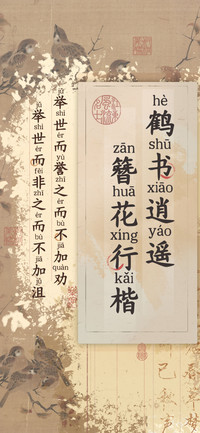 hè shū xiāo yáo
鹤书逍遥
zān huā xíng kǎi
簪花行楷
jǔ shì ér yù zhī ér bù jiā quàn
举世而誉之而不加劝
jǔ shì ér fēi zhī ér bù jiā jǔ
举世而非之而不加沮